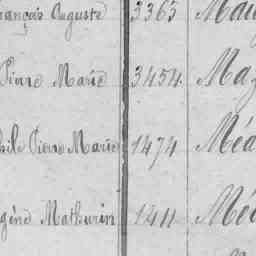 rançois Auguste 3365 Mau
Pierre Marie 3454 Maz
hile Pierre Marie 1474 Méa
gène Mathurin 1411 Mé